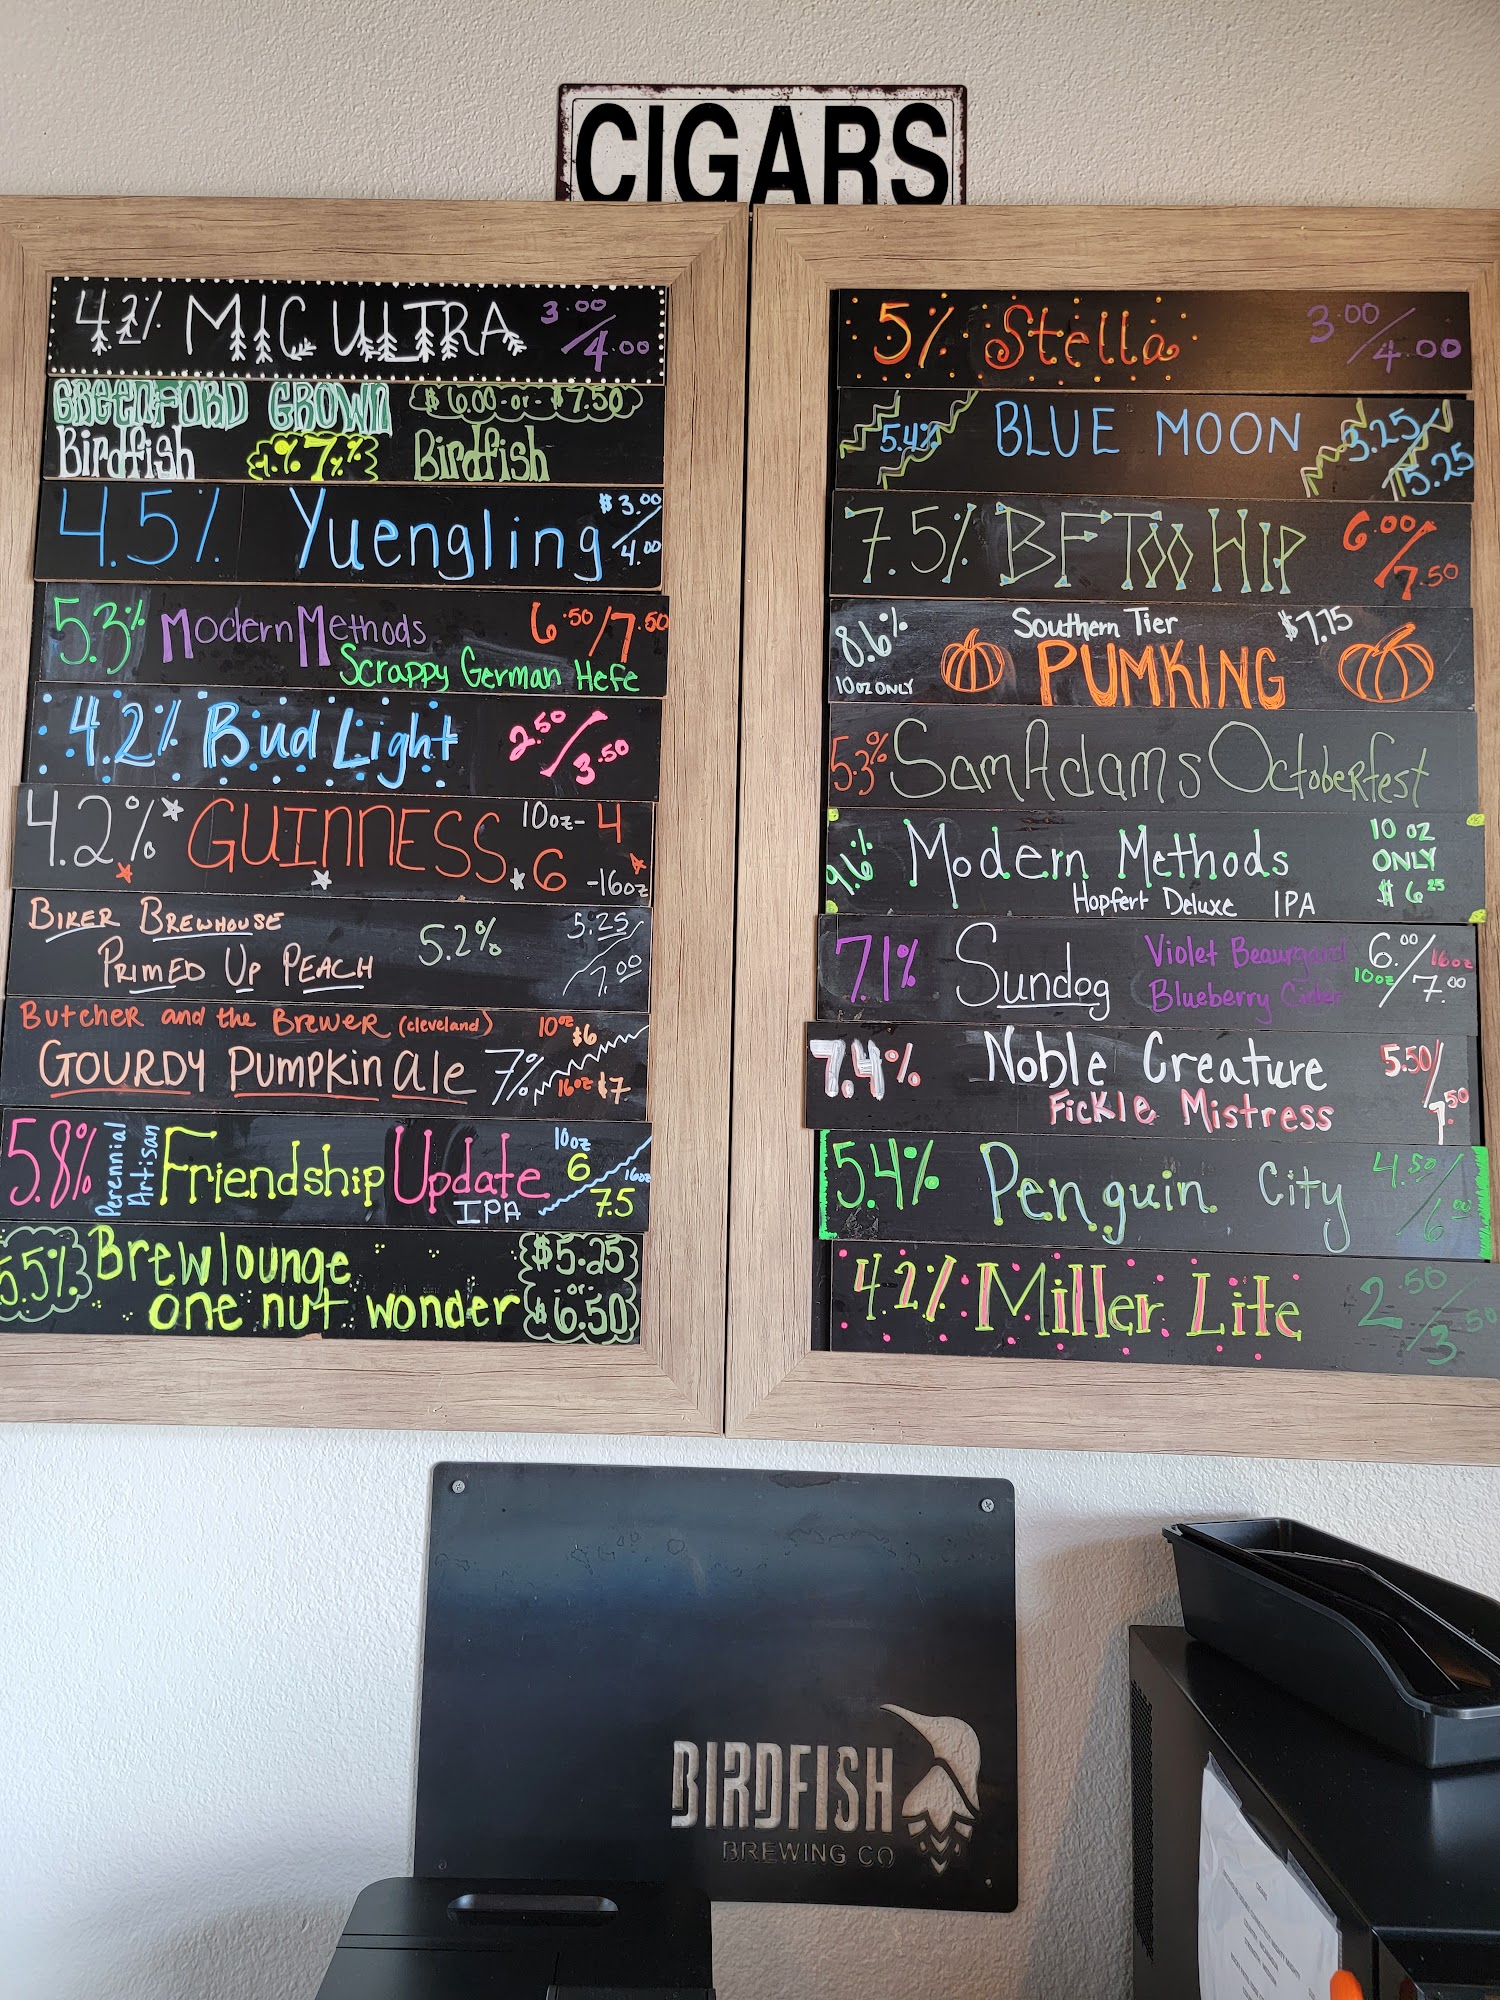 CIGARS
4.2% MIC ULTRA 3.00/4.00
GREENFORD GROWN $6.00-or-$7.50
Birdfish 7% Birdfish
4.5% Yuengling $3.00/4.00
5.3% Modern Methods 6.50/7.50
Scrappy German Hefe
4.2% Bud Light 2.50/3.50
4.2% GUINNESS 10oz-4
6 -16oz
BIKER BREWHOUSE 5.2% 5.25/7.00
PRIMED UP PEACH
Butcher and the Brewer (cleveland) 10oz $6
GOURDY PUMPKIN ale 7% 16oz $7
5.8% Perennial Artisan Friendship Update 10oz 6
IPA 16oz 7.5
5.5% Brewlounge $5.25
one nut wonder or $6.50
5% Stella 3.00/4.00
5.4% BLUE MOON 3.25/5.25
7.5% BF Too HIP 6.00/7.50
8.6% Southern Tier $7.75
10oz ONLY PUMKING
5.3% Sam Adams Octoberfest
9.6% Modern Methods 10 oz ONLY
Hopfert Deluxe IPA $6.25
7.1% Sundog Violet Beaurgard 6.00/7.00
Blueberry Cider 10oz 16oz
7.4% Noble Creature 5.50/7.50
Fickle Mistress
5.4% Penguin City 4.50/6.00
4.2% Miller Lite 2.50/3.50
BIRDFISH
BREWING CO